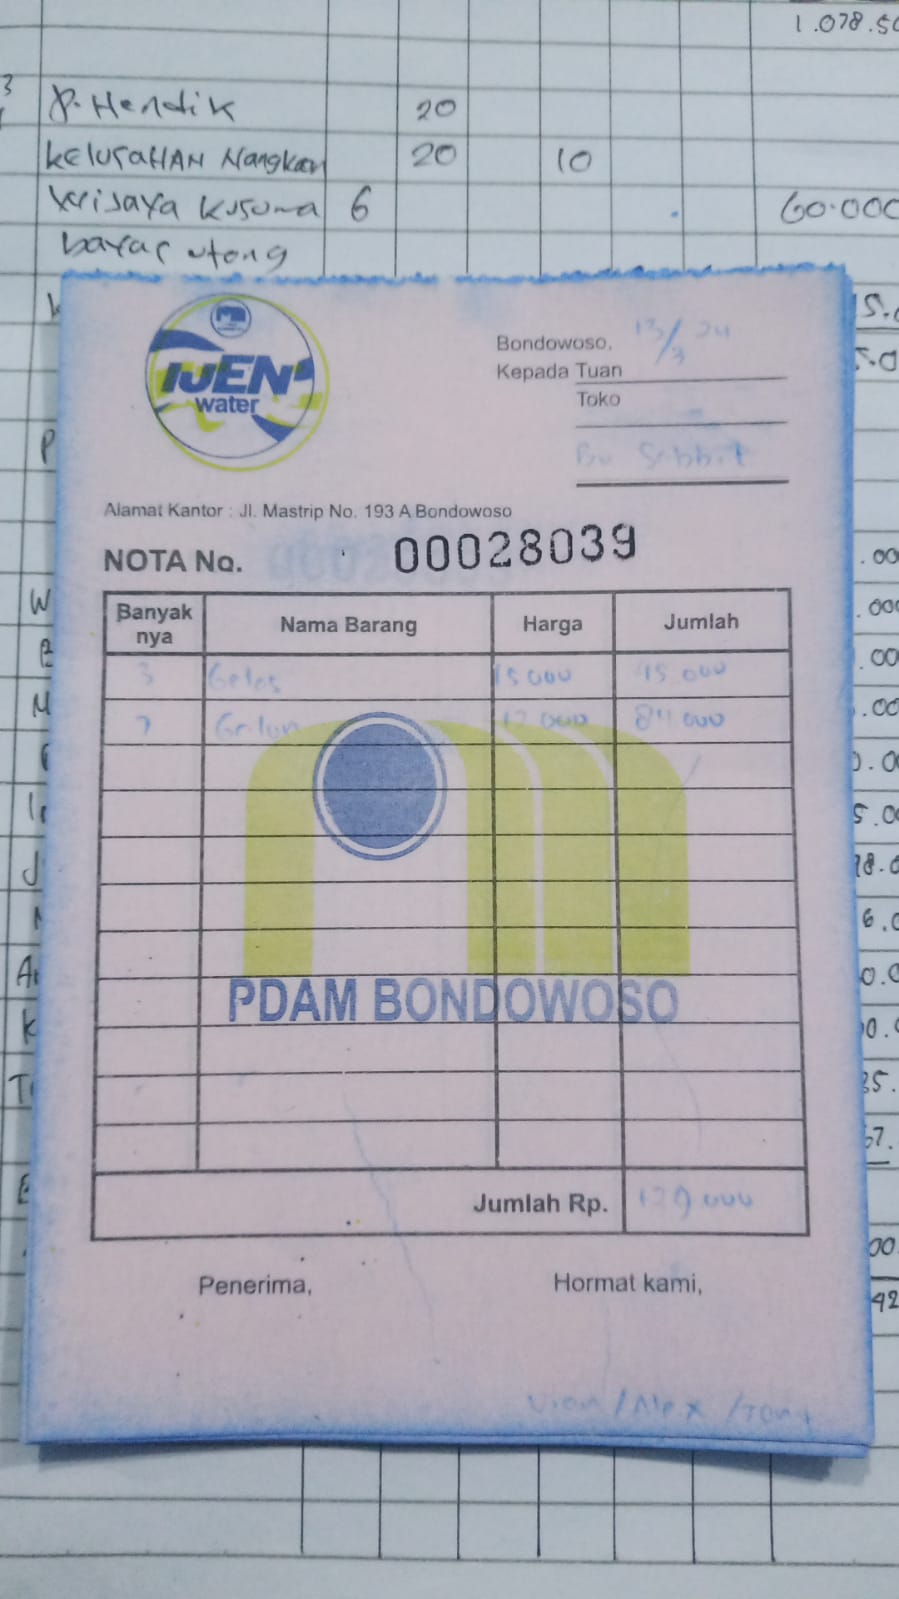 1.078.50
P. Hendik 20
KELURAHAN Nangkaan 20 10
Wijaya Kusuma 6 60.000
bayar utang
IJEN
water
Bondowoso, 13/3 24
Kepada Tuan
Toko
Bu
Alamat Kantor : Jl. Mastrip No. 193 A Bondowoso
NOTA No. 00028039
Banyak nya Nama Barang Harga Jumlah
3 Gelas 15000 45.000
7 Galon 12000 84.000
PDAM BONDOWOSO
Jumlah Rp. 129.000
Penerima, Hormat kami,
Vian/Alex/Tony